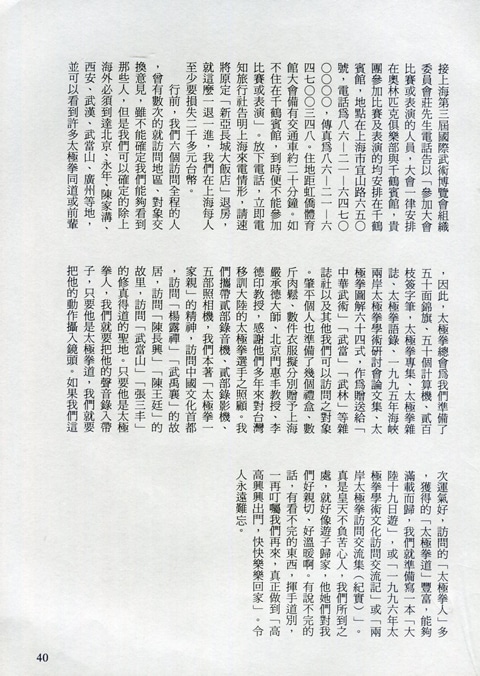 接上海第三屆國際武術博覽會組織
委員會莊先生電話告以「參加大會
比賽或表演的人員，大會一律安排
在奧林匹克俱樂部與千鶴賓館，貴
團參加比賽及表演的均安排在千鶴
賓館，地點在上海市宜山路六五０
號，電話爲八六－二一－六四七０
００００，傳真爲八六－二一－六
四七００三四八。住地距虹僑體育
館大會備有交通車約二十分鐘。如
不住在千鶴賓館，到時便不能參加
比賽或表演」。放下電話，立即電
知旅行社告明上海來電情形，請速
將原定「新亞長城大飯店」退房，
就這麼一退一進，我們在上海每人
至少要損失二千多元台幣。
行前，我們六個訪問全程的人
，曾有數次的就訪問地區、對象交
換意見，雖不能確定我們能夠看到
那些人，但是我們可以確定的除上
海外必須到達北京、永年、陳家溝、
西安、武漢、武當山、廣州等地，
並可以看到許多太極拳同道或前輩
，因此，太極拳總會爲我們準備了
五十面錦旗、五十個計算機、貳百
枝簽字筆，太極拳專集、太極拳雜
誌、太極拳語錄、一九九五年海峽
兩岸太極拳學術研討會論文集、太
極拳圖解六十四式，作爲贈送給「
中華武術」「武當」「武林」等雜
誌社以及其他我們可以訪問之對象
。肇平個人也準備了幾個禮盒、數
斤肉鬆、數件衣服擬分別贈予上海
嚴承德大師、北京門惠丰教授、李
德印教授，感謝他們多年來對台灣
移訓大陸的太極拳選手之照顧。我
們攜帶貳部錄音機、貳部錄影機、
五部照相機，我們本著「太極拳一
家親」的精神，訪問中國文化首都
，訪問「楊露禪」「武禹襄」的故
居，訪問「陳長興」「陳王廷」的
故里，訪問「武當山」「張三丰」
的修真得道的聖地。只要他是太極
拳人，我們就要把他的聲音錄入帶
子，只要他是太極拳道，我們就要
把他的動作攝入鏡頭。如果我們這
次運氣好，訪問的「太極拳人」多
，獲得的「太極拳道」豐富，能夠
滿載而歸，我們就準備寫一本「大
陸十九日遊」，或「一九九六年太
極拳學術文化訪問交流記」或「兩
岸太極拳訪問交流集（紀實）」。
真是皇天不負苦心人，我們所到之
處，就好像遊子歸家，他她們對我
們好親切、好溫暖啊。有說不完的
話，有看不完的東西，揮手道別，
一再叮囑我們再來，真正做到「高
高興興出門，快快樂樂回家」。令
人永遠難忘。
40